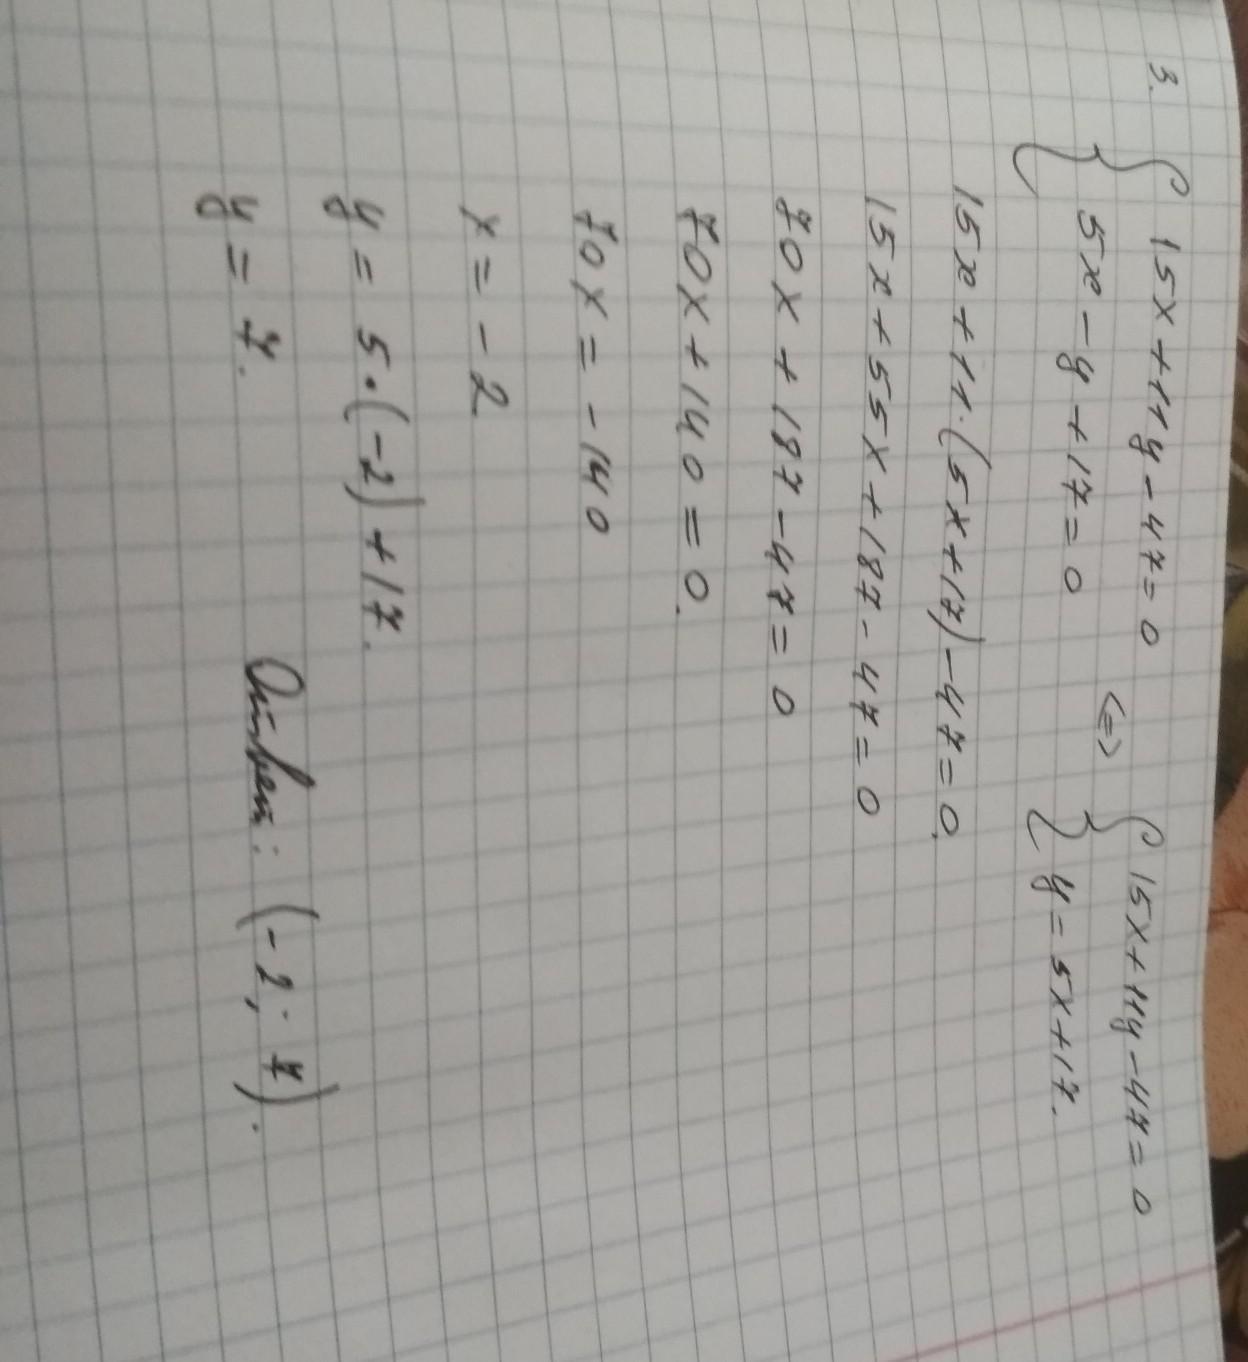 3. { 15x + 11y - 47 = 0 <=> { 15x + 11y - 47 = 0
5x - y + 17 = 0 y = 5x + 17.
15x + 11·(5x + 17) - 47 = 0.
15x + 55x + 187 - 47 = 0
70x + 187 - 47 = 0
70x + 140 = 0.
70x = -140
x = -2
y = 5·(-2) + 17.
y = 7. Ответ: (-2; 7).